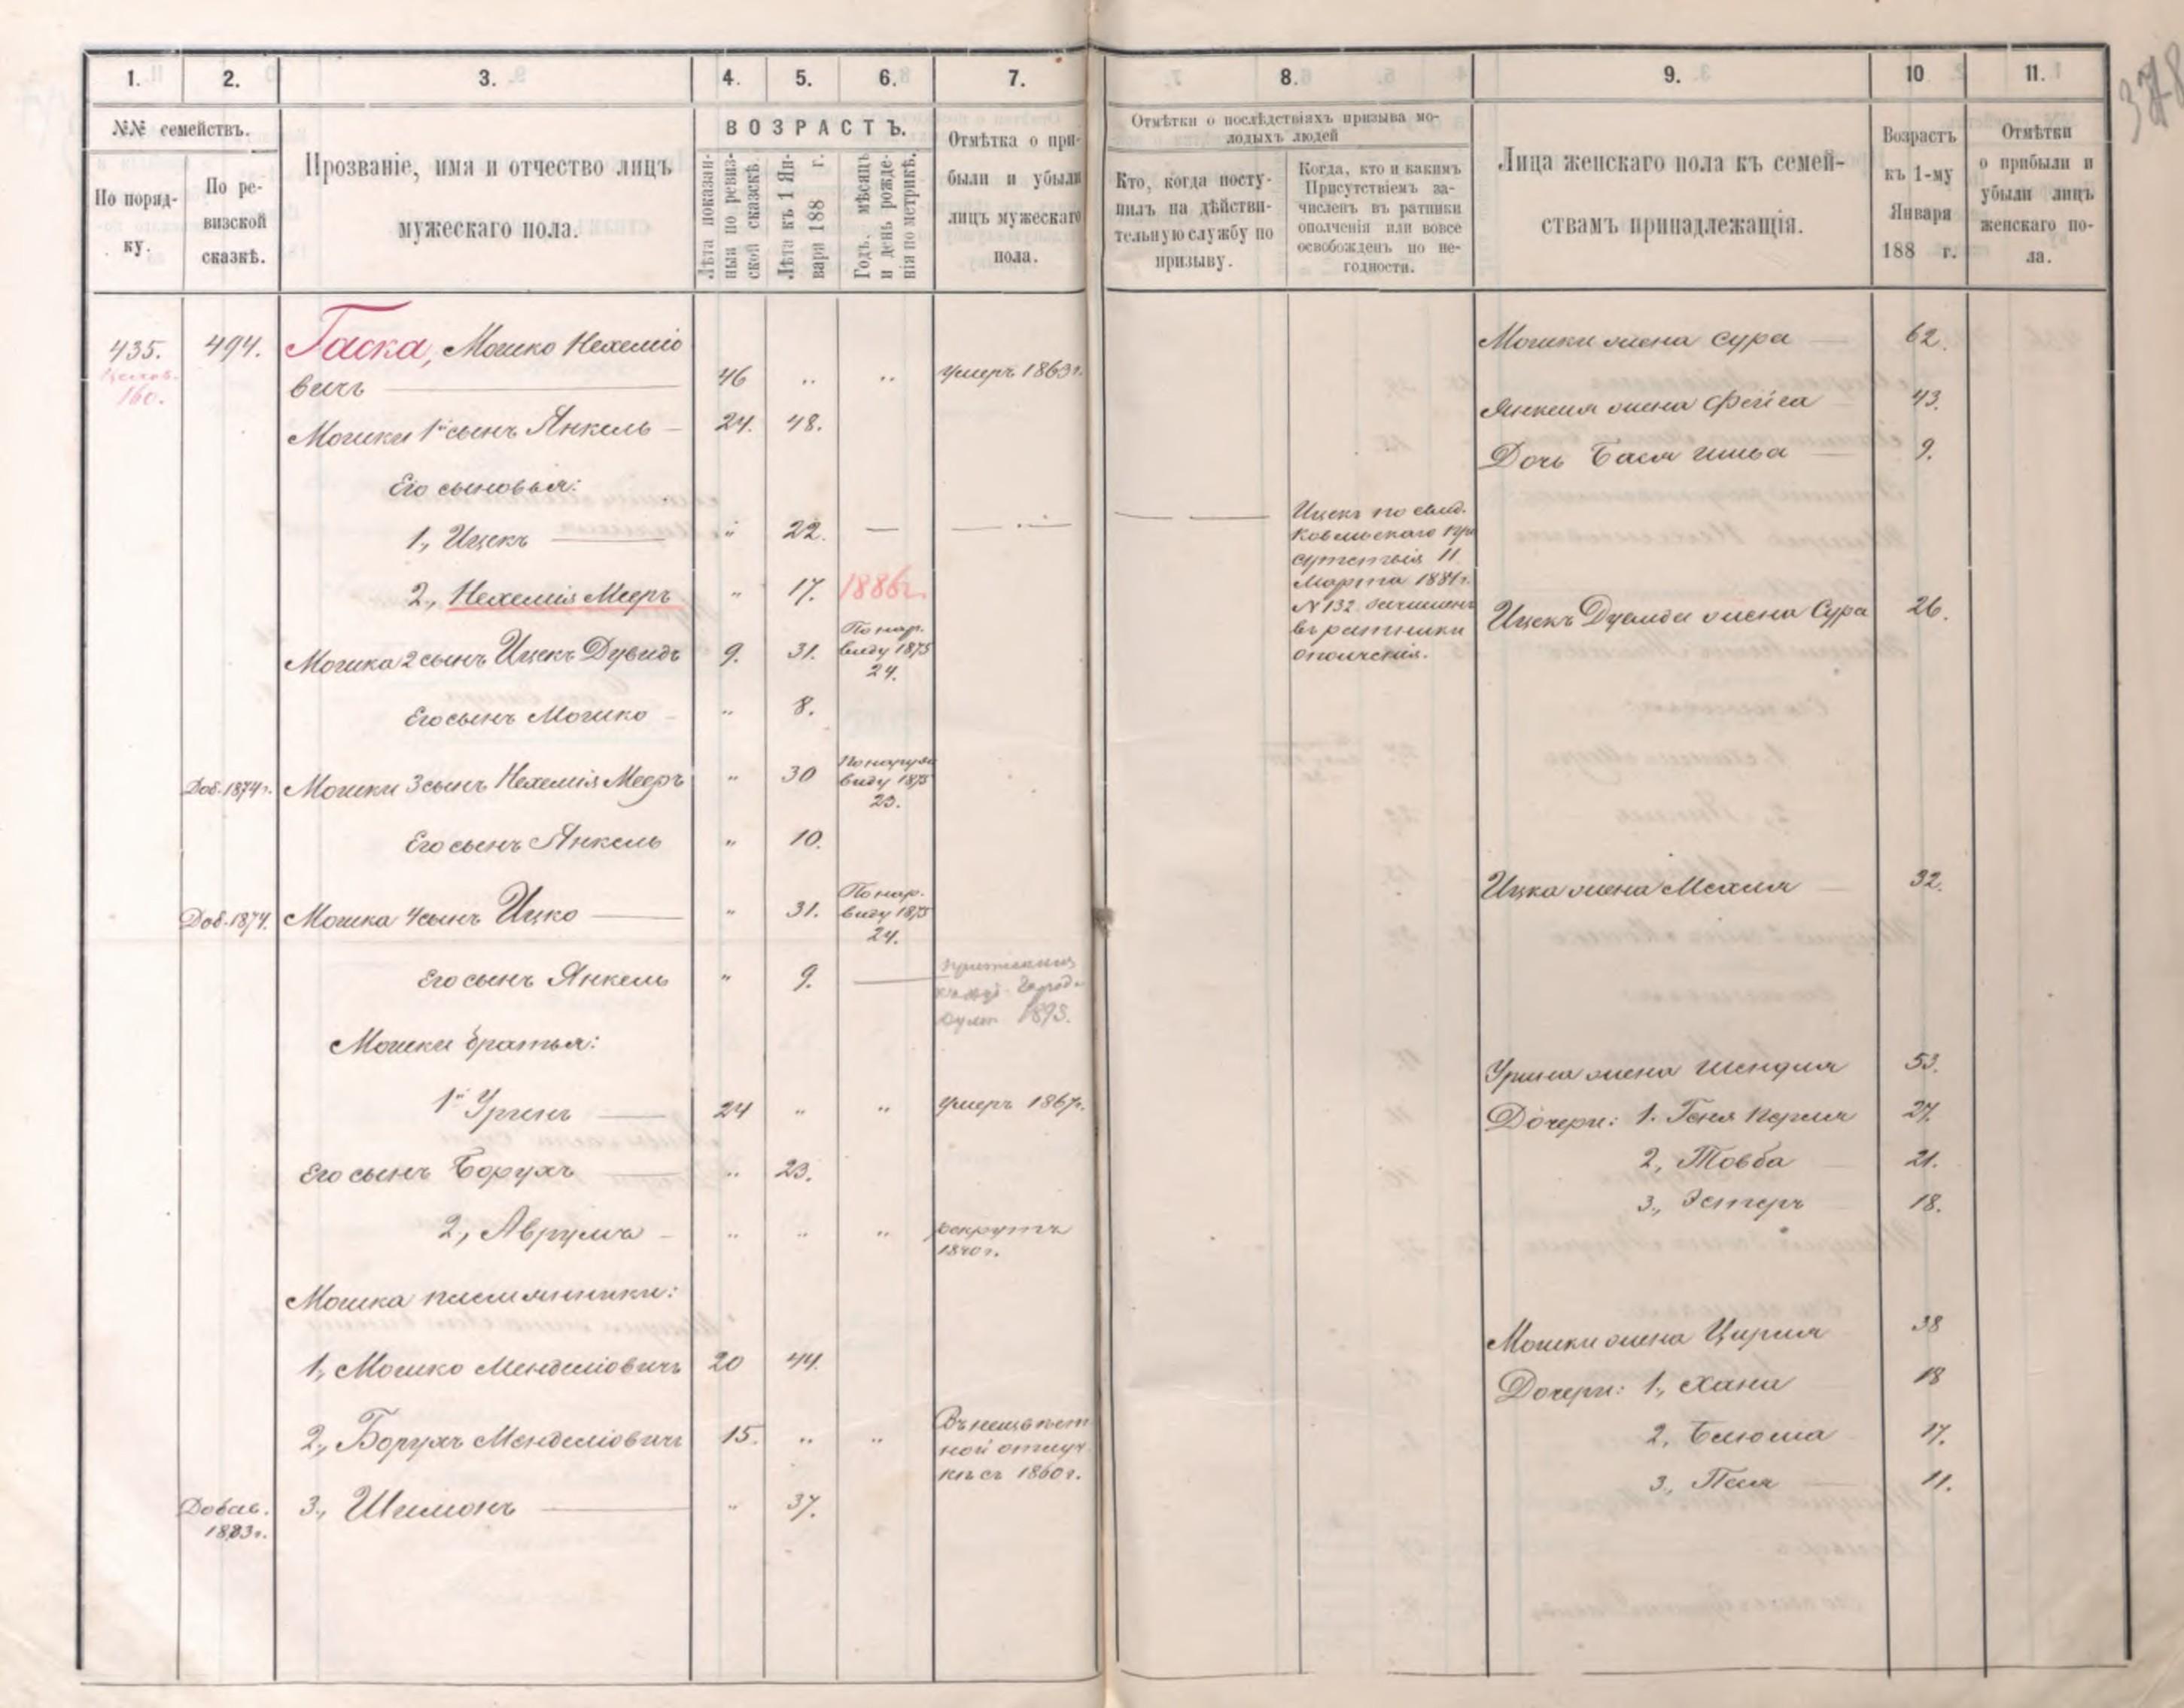 1.
2.
3.
4.
5.
6.
7.
8.
9.
10
11.
378
№№ семействъ.
По поряд-
ку.
По ре-
визской
сказкѣ.
Прозваніе, имя и отчество лицъ
мужескаго пола.
ВОЗРАСТЪ.
Лѣта показан-
ныя по ревиз-
ской сказкѣ.
Лѣта къ 1 Ян-
варя 188 г.
Годъ, мѣсяцъ
и день рожде-
нія по метрикѣ.
Отмѣтка о при-
были и убыли
лицъ мужескаго
пола.
Отмѣтки о послѣдствіяхъ призыва мо-
лодыхъ людей
Кто, когда посту-
пилъ на дѣйстви-
тельную службу по
призыву.
Когда, кто и какимъ
Присутствіемъ за-
численъ въ ратники
ополченія или вовсе
освобожденъ по не-
годности.
Лица женскаго пола къ семей-
ствамъ принадлежащія.
Возрастъ
къ 1-му
Января
188 г.
Отмѣтки
о прибыли и
убыли лицъ
женскаго по-
ла.
435. 494. Гаска, Мошко Нехеміо
160.
вичъ 46 " " умеръ 1863 г.
Мошки 1й сынъ Янкель 24. 48.
Его сыновья:
1, Ицекъ " 22.
2, Нехемія Мееръ " 17. 1886 г.
Мошка 2 сынъ Ицекъ Дувидъ 9. 31. По нар. виду 1875 24.
Его сынъ Мошко " 8.
Доб. 1874 г. Мошки 3 сынъ Нехемія Мееръ " 30 По наруж. виду 1875 23.
Его сынъ Янкель " 10.
Доб. 1874. Мошка 4 сынъ Ицко " 31. По нар. виду 1875 24.
Его сынъ Янкель " 9. 1893.
Мошки братья:
1й Уринъ 24 " " умеръ 1867 г.
Его сынъ Борухъ " 23.
2, Аврумъ " " " рекрутъ
1840 г.
Мошка племянники:
1, Мошко Менделіовичъ 20 44.
2, Борухъ Менделіовичъ 15. " " Въ неизвѣст
ной отлуч
кѣ съ 1860 г.
Добав. 3, Шимонъ " 37.
1883 г.
Ицекъ по свид.
Ковельскаго При
сутствія 11
Марта 1881 г.
№ 132 зачисленъ
въ ратники
ополченія.
Мошки жена Сура 62.
Янкеля жена Фейга 43.
Дочь Бася 9.
Ицекъ Дувида жена Сура 26.
Ицка жена Мехля 32.
Урина жена Шендля 53.
Дочери: 1. Геня Перля 27.
2, Товба 21.
3, Эстеръ 18.
Мошки жена Цирля 38
Дочери: 1, Хана 18
2, Блюма 17.
3, Песя 11.